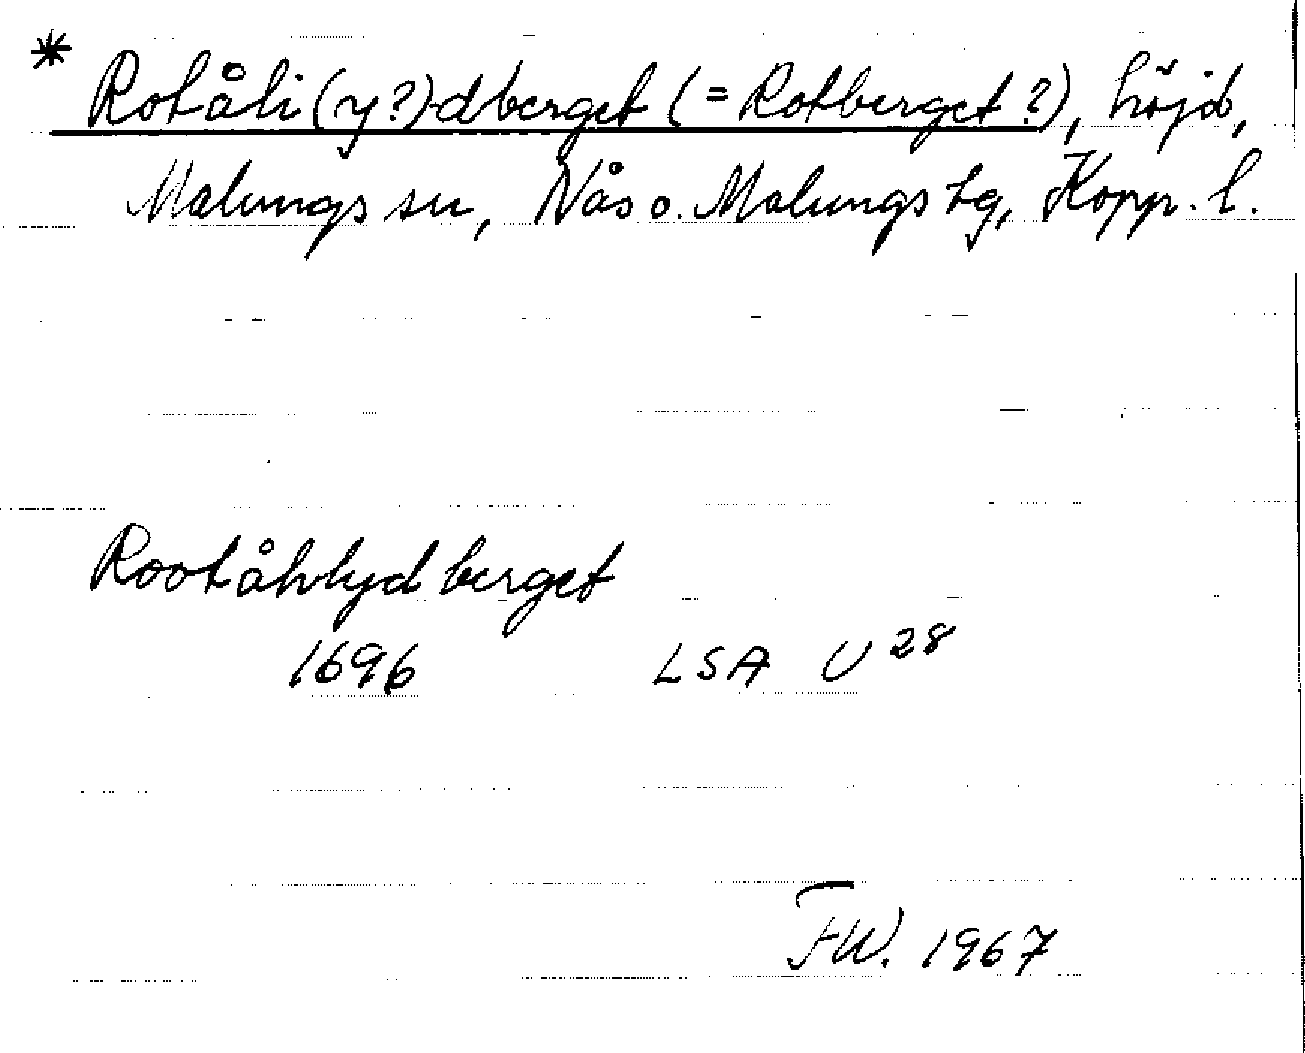 * Rotåli(y?)dberget (= Rotberget?), höjd,
Malungs sn, Nås o. Malungs tg, Kopp. l.
Rootåhlyd berget
1696 LSA U28
FW. 1967